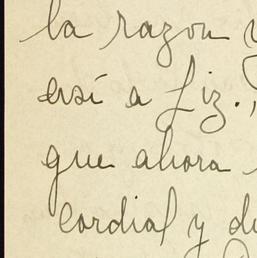 la razon y
así a Liz.,
que ahora
cordial y de